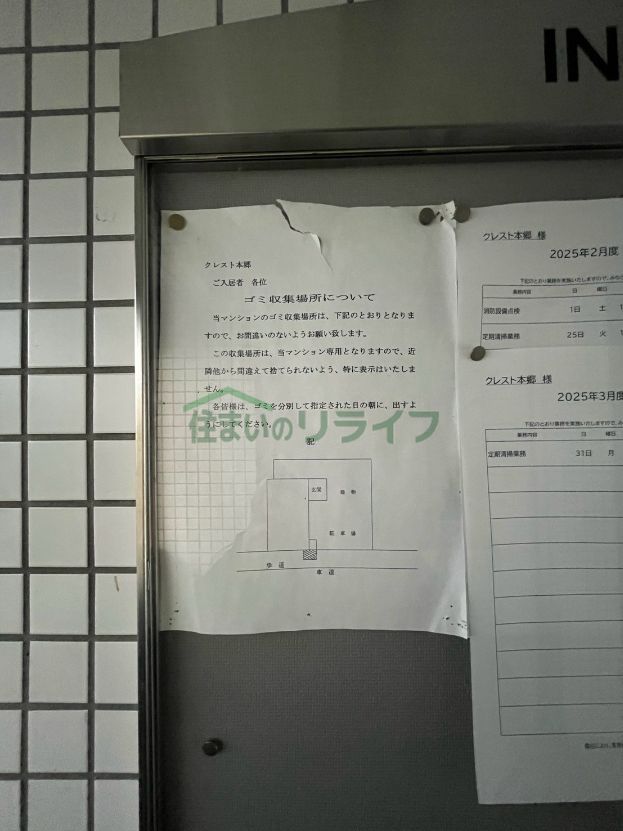 IN
クレスト本郷
ご入居者 各位
ゴミ収集場所について
当マンションのゴミ収集場所は、下記のとおりとなりま
すので、お間違いのないようお願い致します。
この収集場所は、当マンション専用となりますので、近
隣他から間違えて捨てられないよう、特に表示はいたしま
せん。
各皆様は、ゴミを分別して指定された日の朝に、出すよ
うにしてください。
住まいのリライフ
記
玄関
建物
駐車場
歩道
車道
クレスト本郷 様
2025年2月度
下記のとおり業務を実施いたしますので、み
業務内容 日 曜日
消防設備点検 1日 土 1
定期清掃業務 25日 火 1
クレスト本郷 様
2025年3月度
下記のとおり業務を実施いたしますので、み
業務内容 日 曜日
定期清掃業務 31日 月